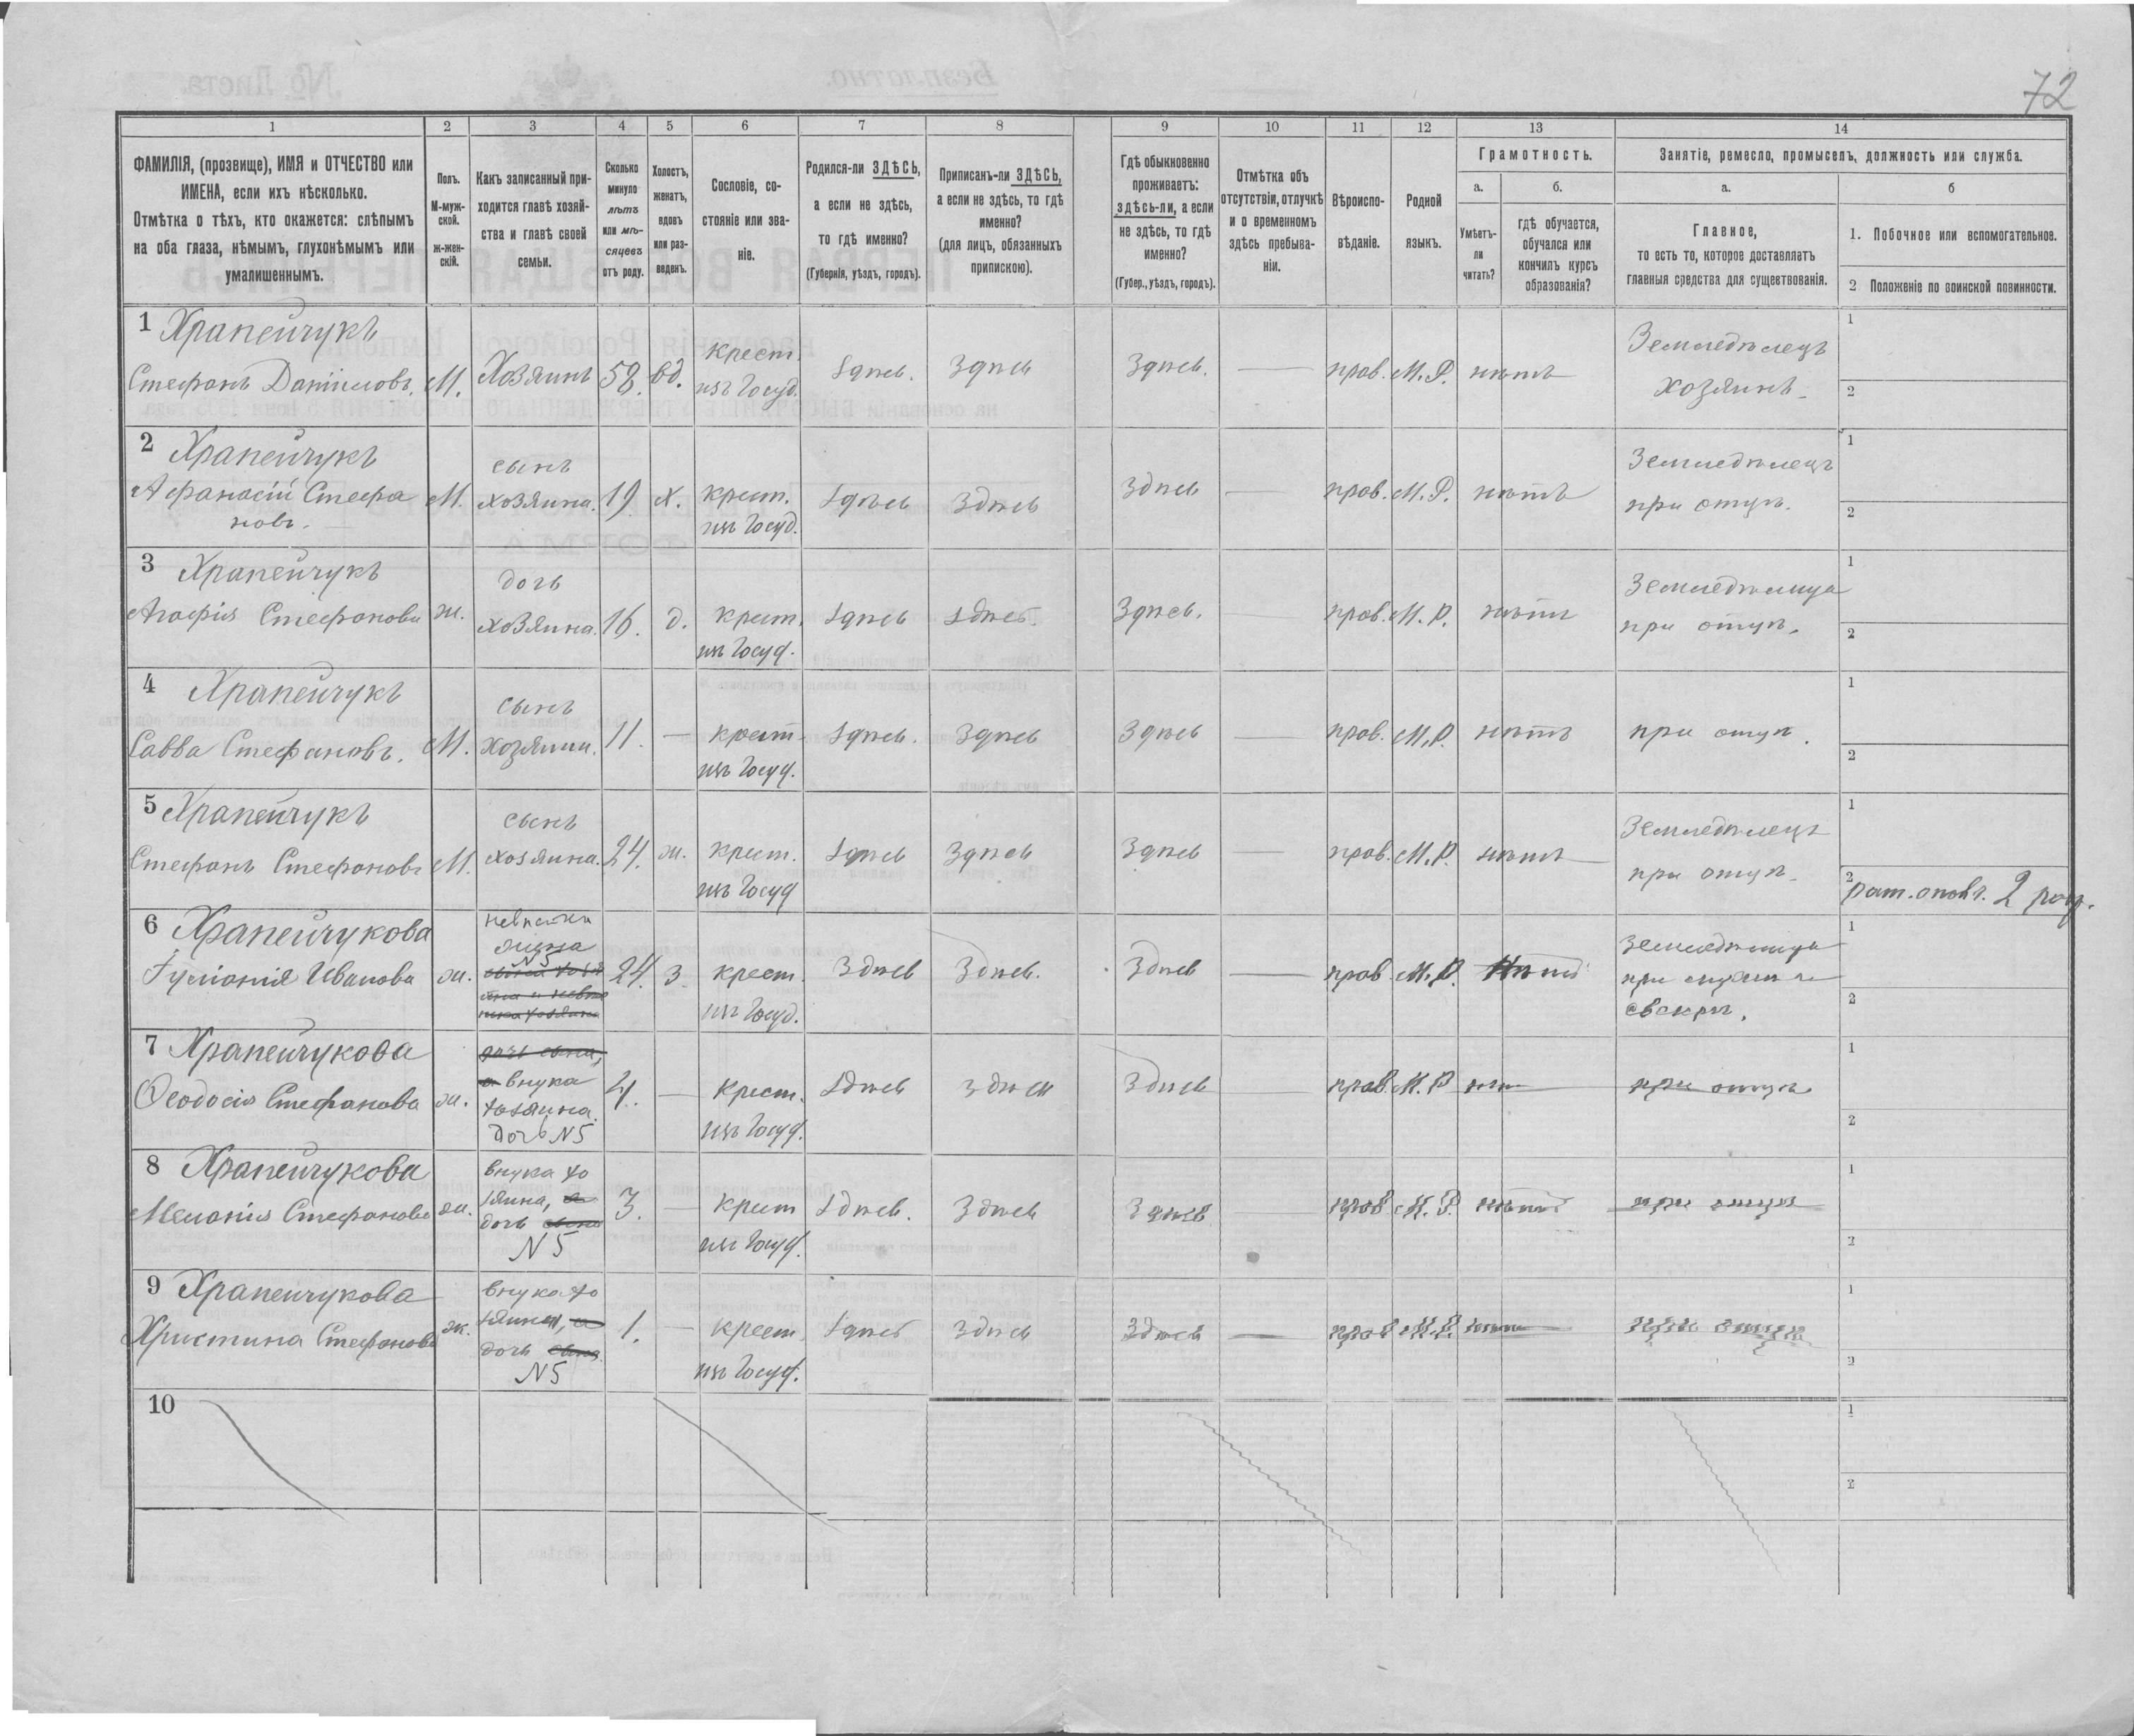 72
1 2 3 4 5 6 7 8 9 10 11 12 13 14
ФАМИЛІЯ, (прозвище), ИМЯ и ОТЧЕСТВО или
ИМЕНА, если ихъ нѣсколько.
Отмѣтка о тѣхъ, кто окажется: слѣпымъ
на оба глаза, нѣмымъ, глухонѣмымъ или
умалишеннымъ.
Полъ.
М-муж-
ской.
ж-жен-
скій.
Какъ записанный при-
ходится главѣ хозяй-
ства и главѣ своей
семьи.
Сколько
минуло
лѣтъ
или мѣ-
сяцевъ
отъ роду.
Холостъ,
женатъ,
вдовъ
или раз-
веденъ.
Сословіе, со-
стояніе или зва-
ніе.
Родился-ли ЗДѢСЬ,
а если не здѣсь,
то гдѣ именно?
(Губернія, уѣздъ, городъ).
Приписанъ-ли ЗДѢСЬ,
а если не здѣсь, то гдѣ
именно?
(для лицъ, обязанныхъ
припискою).
Гдѣ обыкновенно
проживаетъ:
здѣсь-ли, а если
не здѣсь, то гдѣ
именно?
(Губер., уѣздъ, городъ).
Отмѣтка объ
отсутствіи, отлучкѣ
и о временномъ
здѣсь пребыва-
ніи.
Вѣроиспо-
вѣданіе.
Родной
языкъ.
Грамотность.
а. б.
Умѣетъ-
ли
читать?
гдѣ обучается,
обучался или
кончилъ курсъ
образованія?
Занятіе, ремесло, промыселъ, должность или служба.
а. б
Главное,
то есть то, которое доставляетъ
главныя средства для существованія.
1. Побочное или вспомогательное.
2 Положеніе по воинской повинности.
1 Храпейчукъ
Стефанъ Даніиловъ. М. Хозяинъ 58. вд. крест. изъ Госуд. Здѣсь. Здѣсь Здѣсь. — прав. М.Р. нѣтъ Земледѣлецъ хозяинъ 1 2
2 Храпейчукъ
Афанасій Стефа
новъ. М. сынъ хозяина. 19 х. крест. изъ Госуд. Здѣсь Здѣсь Здѣсь — прав. М.Р. нѣтъ Земледѣлецъ при отцѣ. 1 2
3 Храпейчукъ
Агафія Стефанова ж. дочь хозяина. 16. д. крест. изъ Госуд. Здѣсь Здѣсь Здѣсь. — прав. М.Р. нѣтъ Земледѣлица при отцѣ. 1 2
4 Храпейчукъ
Савва Стефановъ. М. сынъ хозяина. 11. — крест изъ Госуд. Здѣсь. Здѣсь Здѣсь — прав. М.Р. нѣтъ при отцѣ. 1 2
5 Храпейчукъ
Стефанъ Стефановъ М. сынъ хозяина. 24. ж. крест. изъ Госуд Здѣсь Здѣсь Здѣсь — прав. М.Р. нѣтъ Земледѣлецъ при отцѣ 1 2 рат. опол. 2 раз.
6 Храпейчукова
Іуліанія Иванова ж. невѣстка жена N5 24. з. крест. изъ Госуд. Здѣсь Здѣсь. Здѣсь — прав М.Р. Нѣтъ Земледѣлица при свекрѣ. 1 2
7 Храпейчукова
Ѳеодосія Стефанова ж. дочь сына, внука хозяина. дочь N5 4. — крест. изъ Госуд. Здѣсь Здѣсь Здѣсь — прав. М.Р при отцѣ 1 2
8 Храпейчукова
Меланія Стефанова ж. внука хо зяина, дочь сына N5 3. — крест изъ Госуд. Здѣсь. Здѣсь Здѣсь — прав М.Р. нѣтъ при отцѣ 1 2
9 Храпейчукова
Христина Стефанова ж. внука хо зяина, дочь сына N5 1. — крест. изъ Госуд. Здѣсь Здѣсь Здѣсь — прав М.Р. при отцѣ 1 2
10 1 2